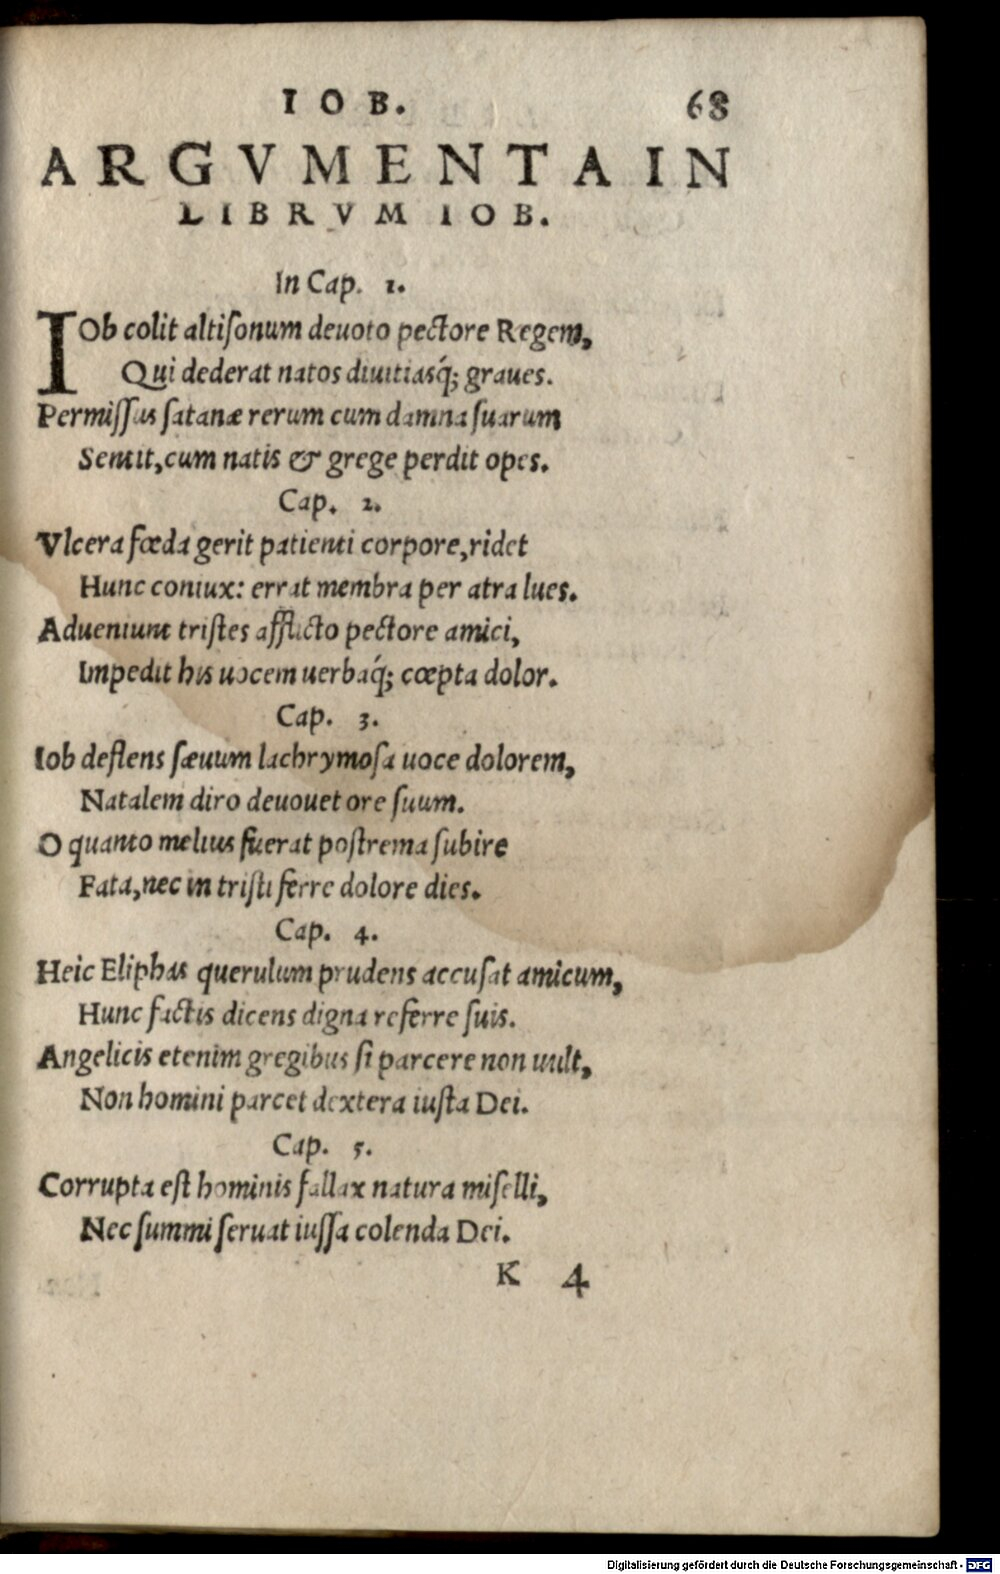 IOB. 68
ARGVMENTA IN
LIBRVM IOB.
In Cap. 1.
IOb colit altiſonum deuoto pectore Regem,
Qui dederat natos diuitiasq́; graues.
Permiſſus ſatanæ rerum cum damna ſuarum
Sentit, cum natis & grege perdit opes.
Cap. 2.
Vlcera fœda gerit patienti corpore, ridet
Hunc coniux: errat membra per atra lues.
Adueniunt triſtes afflicto pectore amici,
Impedit his uocem uerbaq́; cœpta dolor.
Cap. 3.
Iob deflens ſæuum lachrymoſa uoce dolorem,
Natalem diro deuouet ore ſuum.
O quanto melius fuerat poſtrema ſubire
Fata, nec in triſti ferre dolore dies.
Cap. 4.
Heic Eliphas querulum prudens accuſat amicum,
Hunc factis dicens digna referre ſuis.
Angelicis etenim gregibus ſi parcere non uult,
Non homini parcet dextera iuſta Dei.
Cap. 5.
Corrupta eſt hominis fallax natura miſelli,
Nec ſummi ſeruat iuſſa colenda Dei.
K 4
Digitalisierung gefördert durch die Deutsche Forschungsgemeinschaft - DFG